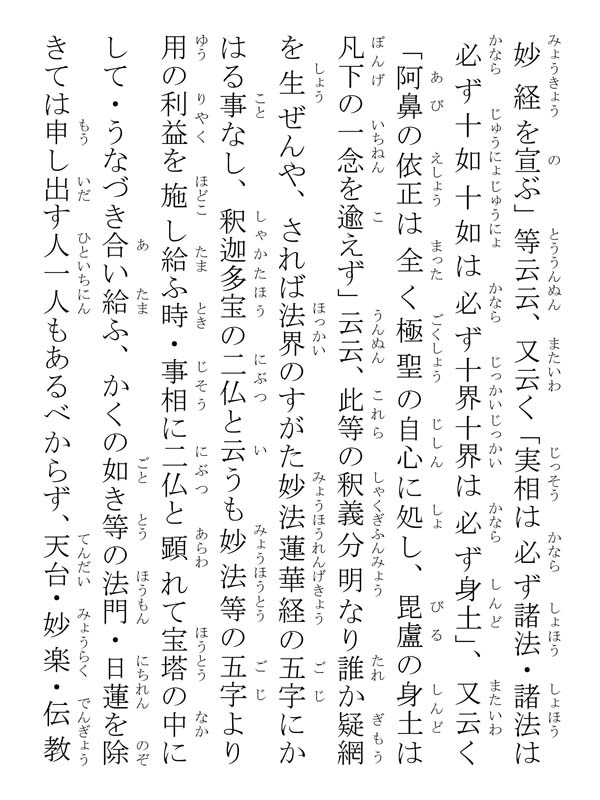 妙経を宣ぶ」等云云、又云く「実相は必ず諸法・諸法は
必ず十如十如は必ず十界十界は必ず身土」、又云く
「阿鼻の依正は全く極聖の自心に処し、毘盧の身土は
凡下の一念を逾えず」云云、此等の釈義分明なり誰か疑網
を生ぜんや、されば法界のすがた妙法蓮華経の五字にか
はる事なし、釈迦多宝の二仏と云うも妙法等の五字より
用の利益を施し給ふ時・事相に二仏と顕れて宝塔の中に
して・うなづき合い給ふ、かくの如き等の法門・日蓮を除
きては申し出す人一人もあるべからず、天台・妙楽・伝教